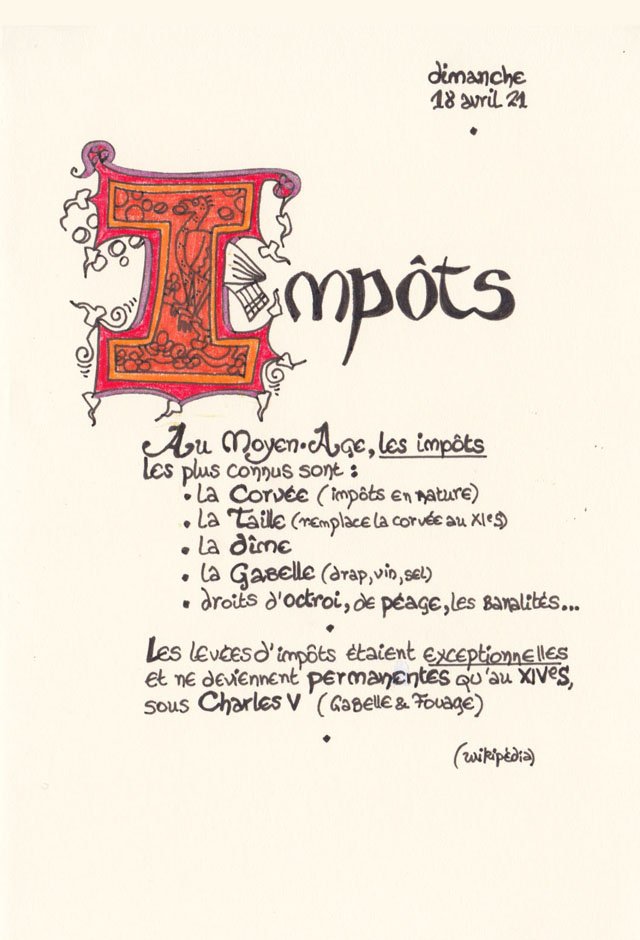 dimanche
18 avril 21
Impôts
Au Moyen-Age, les impôts
les plus connus sont :
• la Corvée (impôts en nature)
• la Taille (remplace la corvée au XIes)
• la dîme
• la Gabelle (drap, vin, sel)
• droits d'octroi, de péage, les banalités...
Les levées d'impôts étaient exceptionnelles
et ne deviennent permanentes qu'au XIVes,
sous Charles V (Gabelle & Fouage)
(wikipédia)